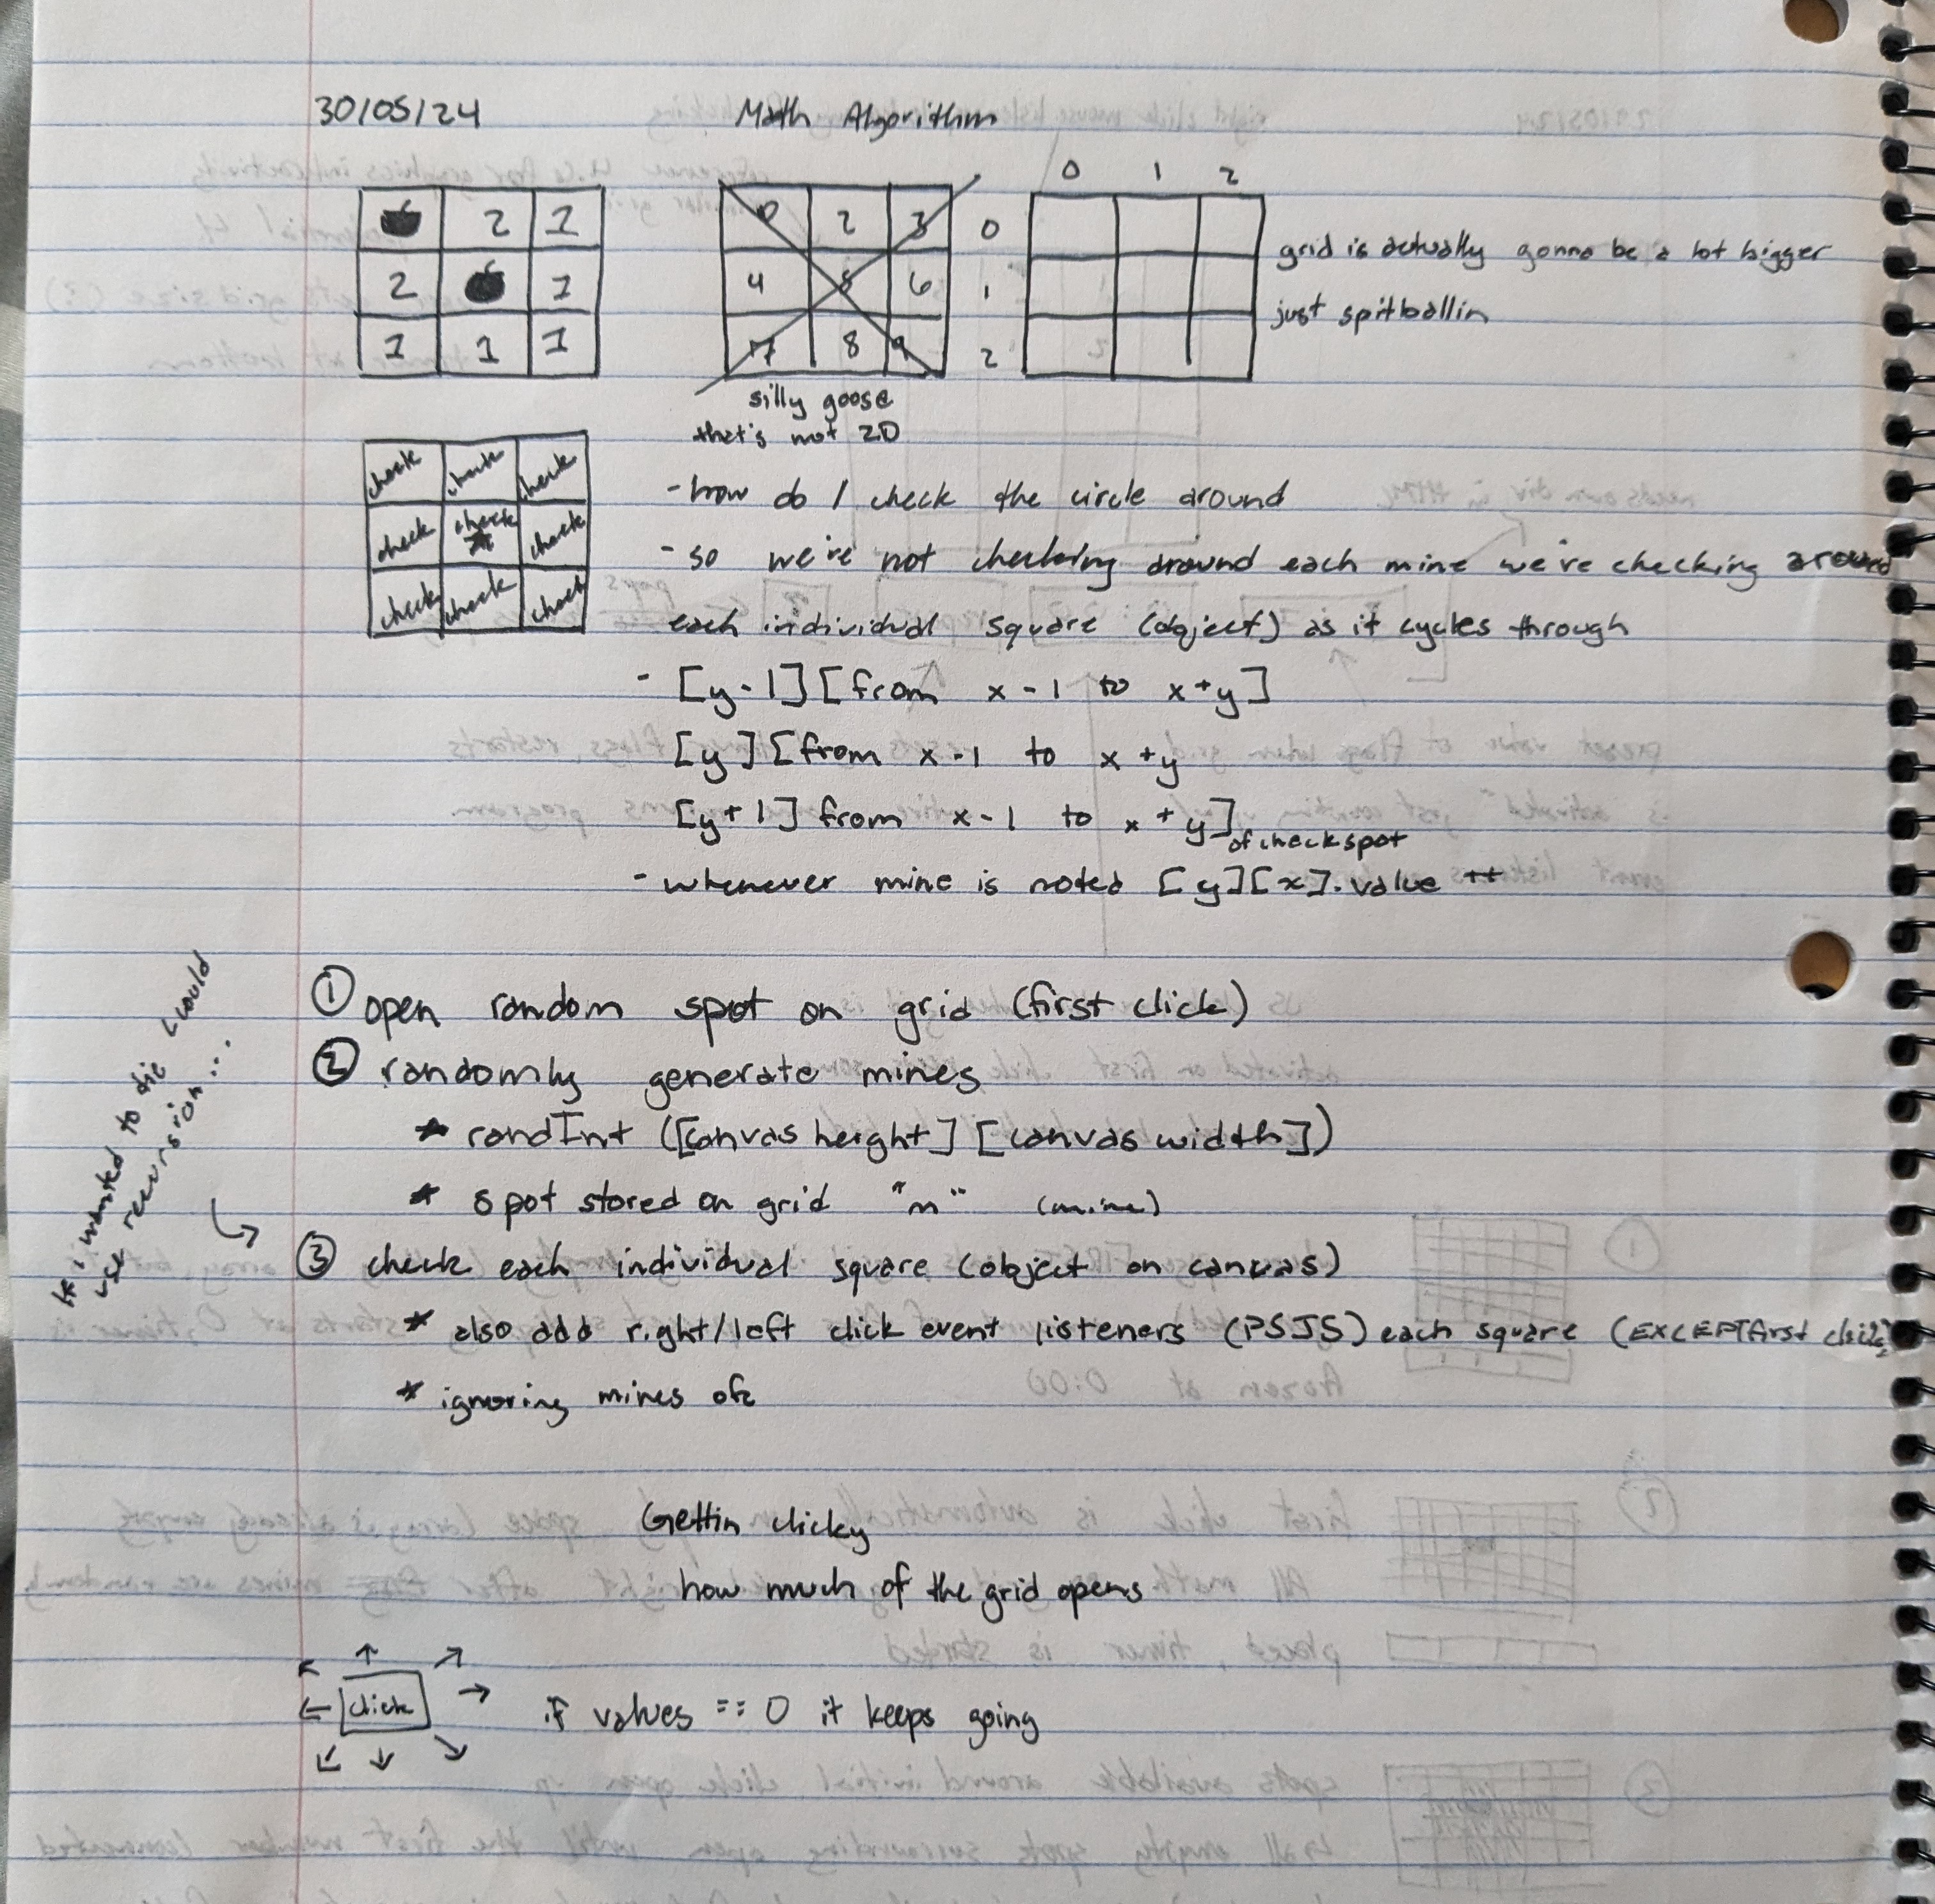 30/05/24
Math Algorithm
2 1
2 1
1 1 1
0 2 3
4 5 6
7 8 9
silly goose
that's not 2D
0 1 2
0
1
2
grid is actually gonna be a lot bigger
just spitballin
check check check
check check check
check check check
- how do I check the circle around
- so we're not checking around each mine we're checking around
each individual square (object) as it cycles through
- [y-1][from x-1 to x+y]
[y][from x-1 to x+y
[y+1] from x-1 to x+y] of check spot
- whenever mine is noted [y][x].value ++
① open random spot on grid (first click)
② randomly generate mines
* randInt ([canvas height][canvas width])
* spot stored on grid "m" (mine)
if i wanted to die i would
use recursion...
③ check each individual square (object on canvas)
* also add right/left click event listeners (P5JS) each square (EXCEPT first click)
* ignoring mines ofc
Gettin clicky
how much of the grid opens
click
if values == 0 it keeps going